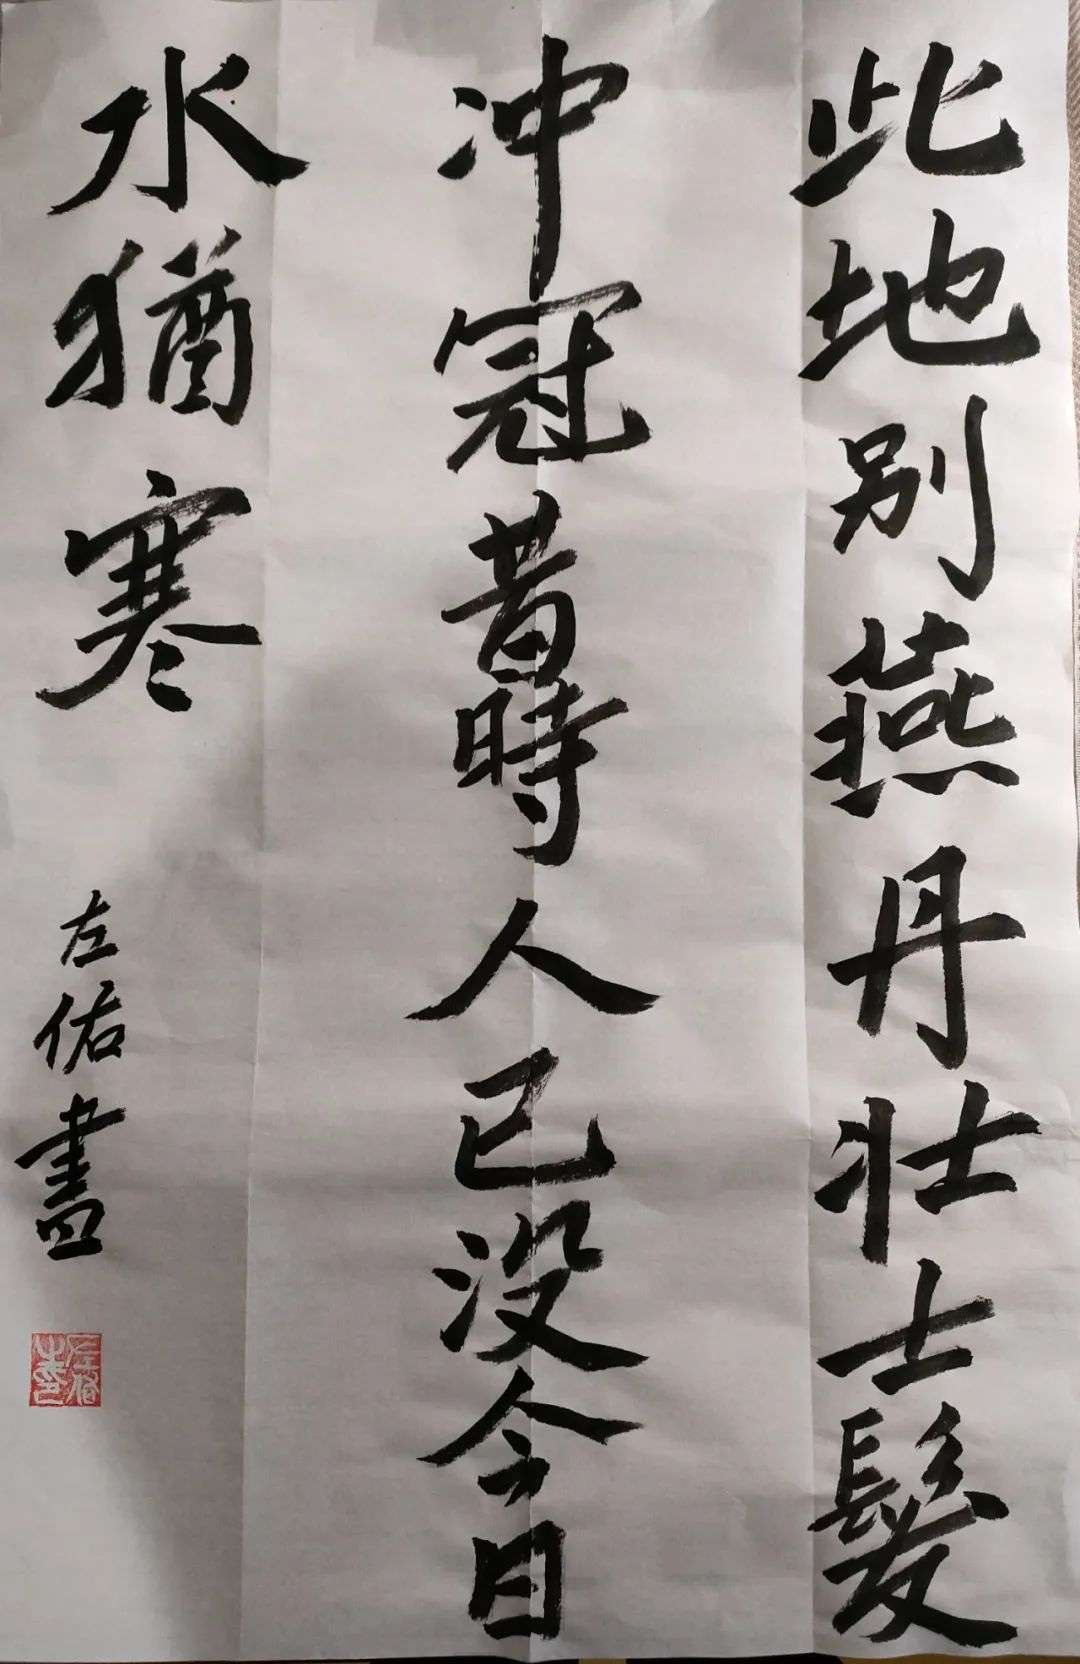 此地别燕丹壮士髮
冲冠昔時人已没今日
水猶寒
左佑書